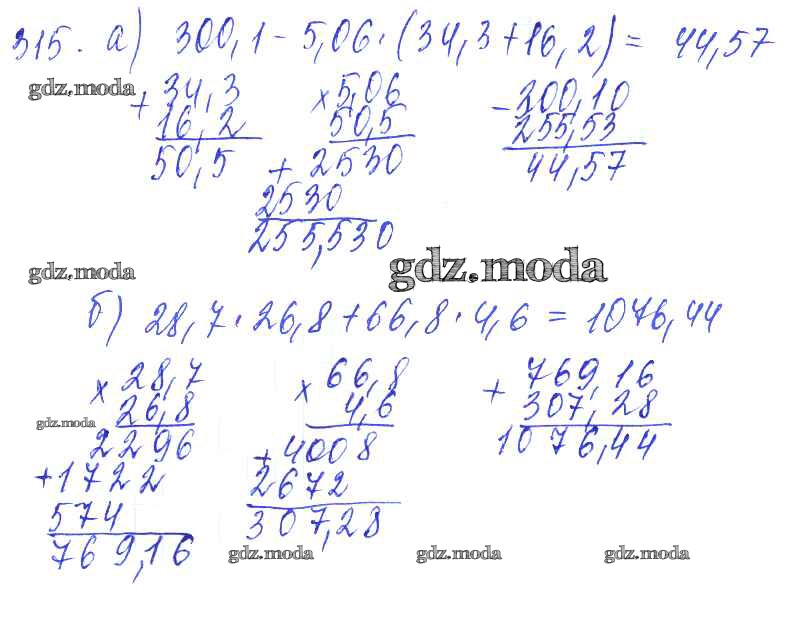 315. а) 300,1 - 5,06 · (34,3 + 16,2) = 44,57
gdz.moda
+ 34,3
16,2
50,5
× 5,06
50,5
+ 2530
2530
255,530
- 300,10
255,53
44,57
gdz.moda
gdz.moda
б) 28,7 · 26,8 + 66,8 · 4,6 = 1076,44
× 28,7
26,8
gdz.moda
2296
+ 1722
574
769,16
× 66,8
4,6
+ 4008
2672
307,28
+ 769,16
307,28
1076,44
gdz.moda
gdz.moda
gdz.moda